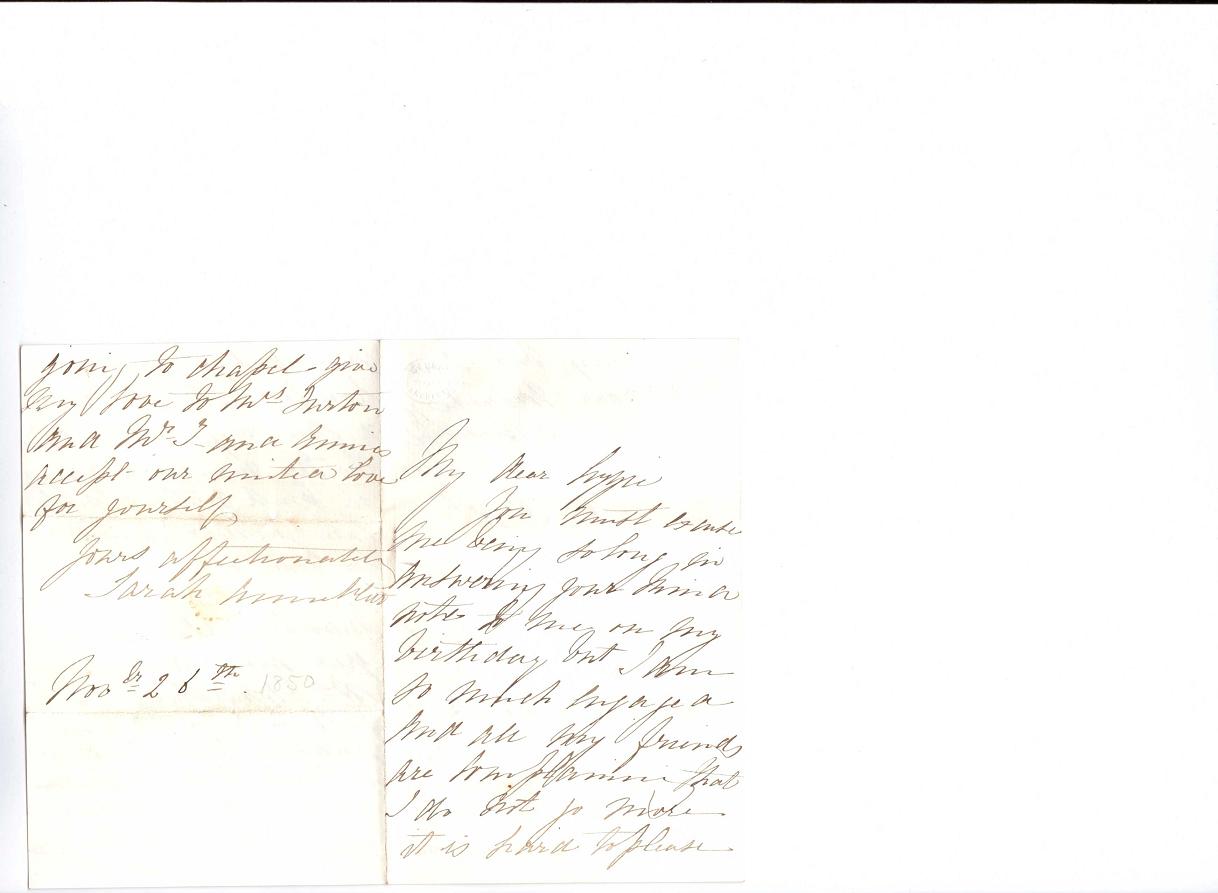 My dear
You must excuse
me being so long in
answering your kind
note to me on my
birthday but I am
so much engaged
and all my friends
are complaining that
I do not go more
it is hard to please
going to chapel give
my love to Mrs Turton
and Mr T and Annie
accept our united love
for yourself
yours affectionately
Sarah
Novbr 26th. 1850